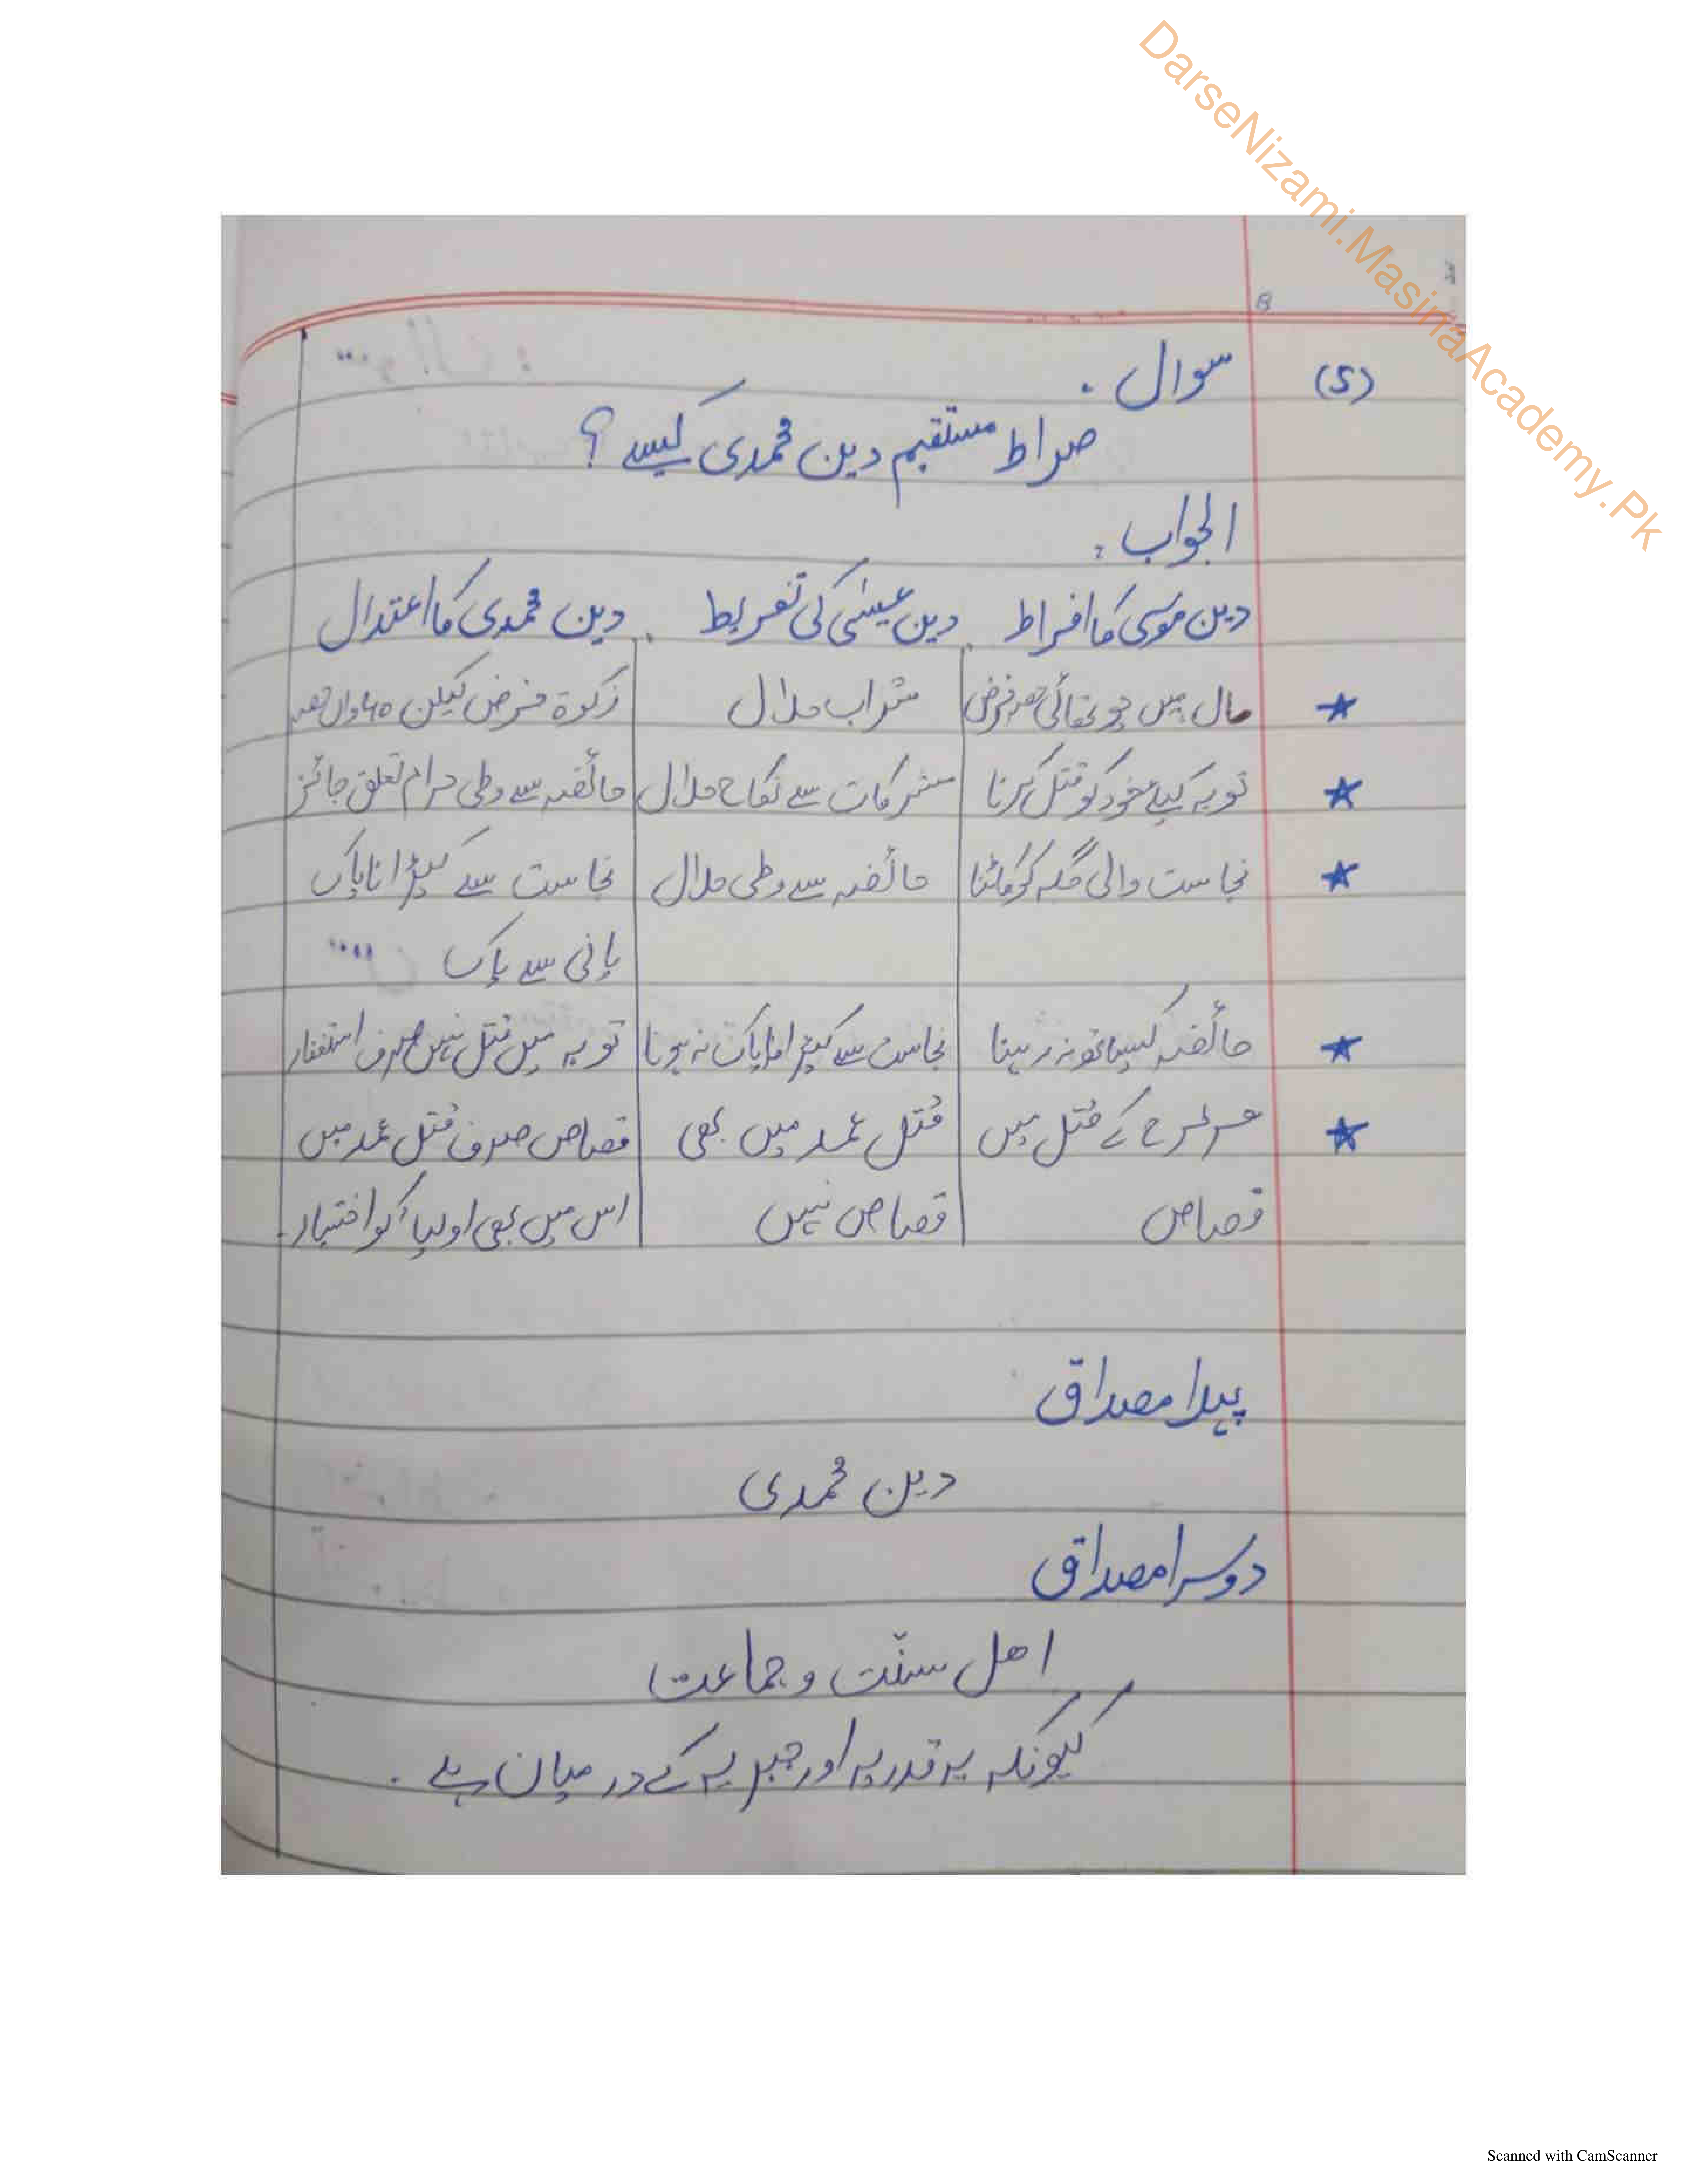 DarseNizami.MasinaAcademy.Pk
(5) سوال .
صراط مستقیم دین محمدی کیسے ؟
الجواب :
دین موسی کا افراط . دین عیسٰی کی تفریط . دین محمدی کا اعتدال
★ مال میں چوتھائی حصہ فرض شراب حلال زکوۃ فرض لیکن 40 واں حصہ
★ توبہ کیلئے خود کو قتل کرنا مشرکات سے نکاح حلال حائضہ سے وطی حرام تعلق جائز
★ نجاست والی جگہ کو کاٹنا حائضہ سے وطی حلال نجاست سے کپڑا ناپاک
پانی سے پاک
★ حائضہ کیساتھ نہ رہنا نجاست سے کپڑا ناپاک نہ ہونا توبہ میں قتل نہیں صرف استغفار
★ ہر طرح کے قتل میں قتل عمد میں بھی قصاص صرف قتل عمد میں
قصاص قصاص نہیں اس میں بھی اولیاء کو اختیار۔
پہلا مصداق
دین محمدی
دوسرا مصداق
اھل سنّت و جماعت
کیونکہ یہ قدریہ اور جبریہ کے درمیان ہے .
Scanned with CamScanner